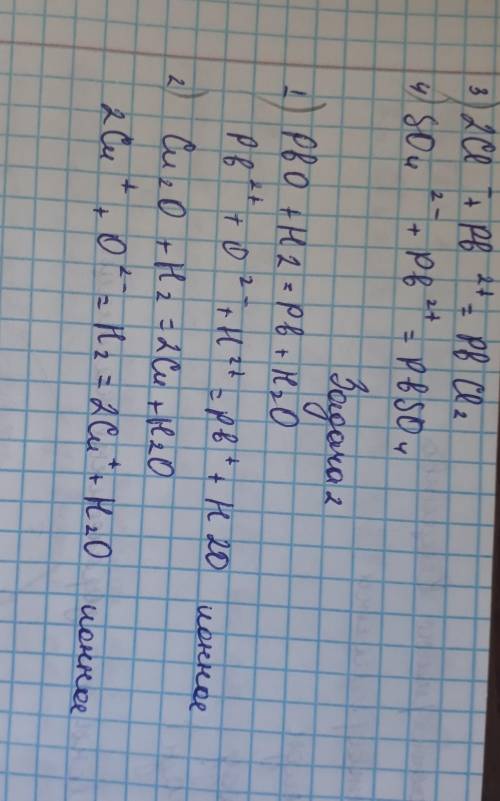 3) 2Cl⁻ + Pb²⁺ = PbCl₂
4) SO₄²⁻ + Pb²⁺ = PbSO₄
Задача 2
1) PbO + H2 = Pb + H₂O
Pb²⁺ + O²⁻ + H²⁺ = Pb⁺ + H2O ионное
2) Cu₂O + H₂ = 2Cu + H₂O
2Cu⁺ + O²⁻ = H₂ = 2Cu⁺ + H₂O ионное